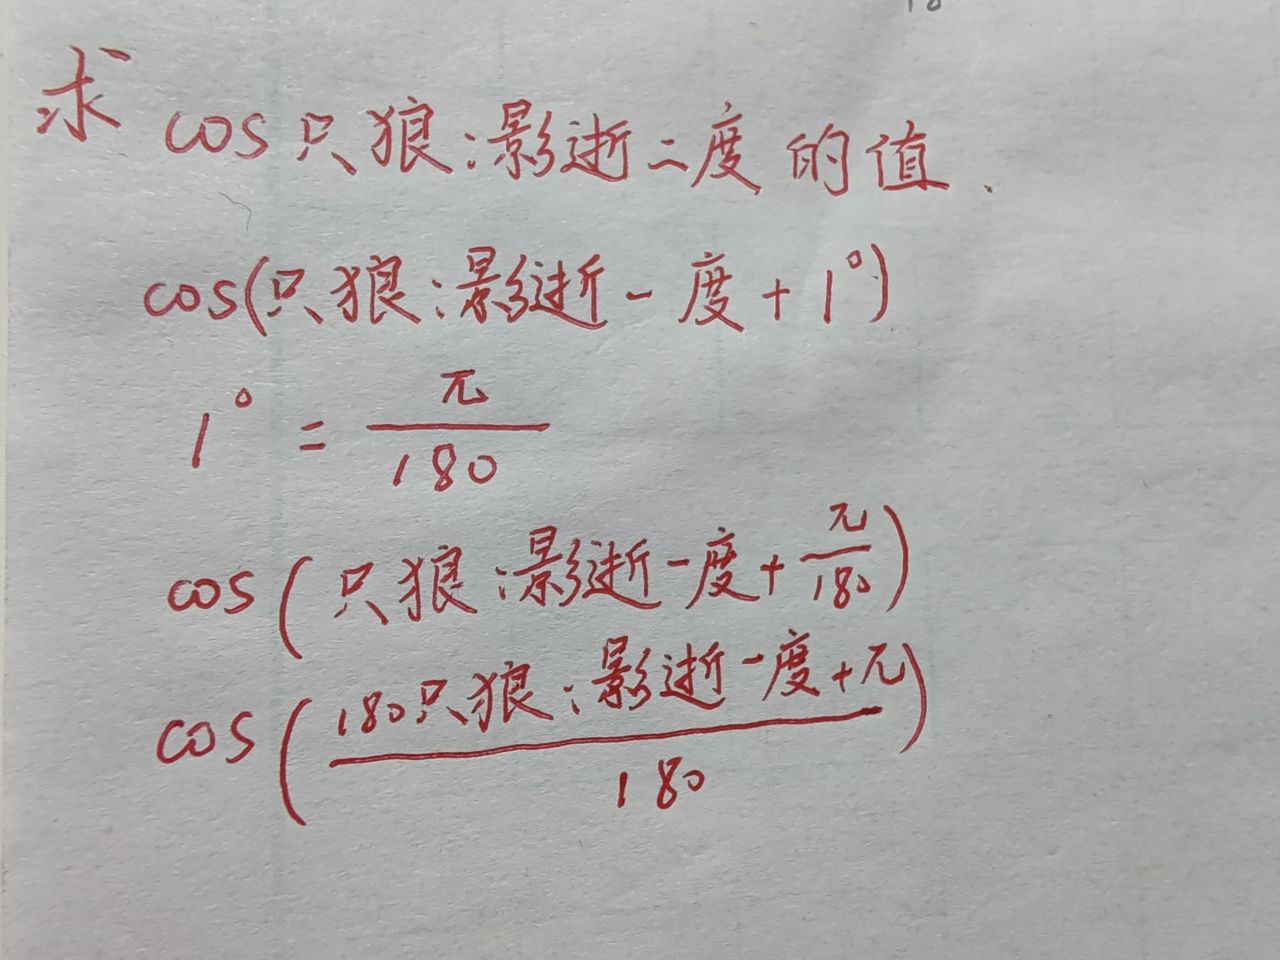 求 cos只狼:影逝二度的值.
cos(只狼:影逝一度+1°)
1° = π/180
cos(只狼:影逝一度+π/180)
cos(180只狼:影逝一度+π/180)